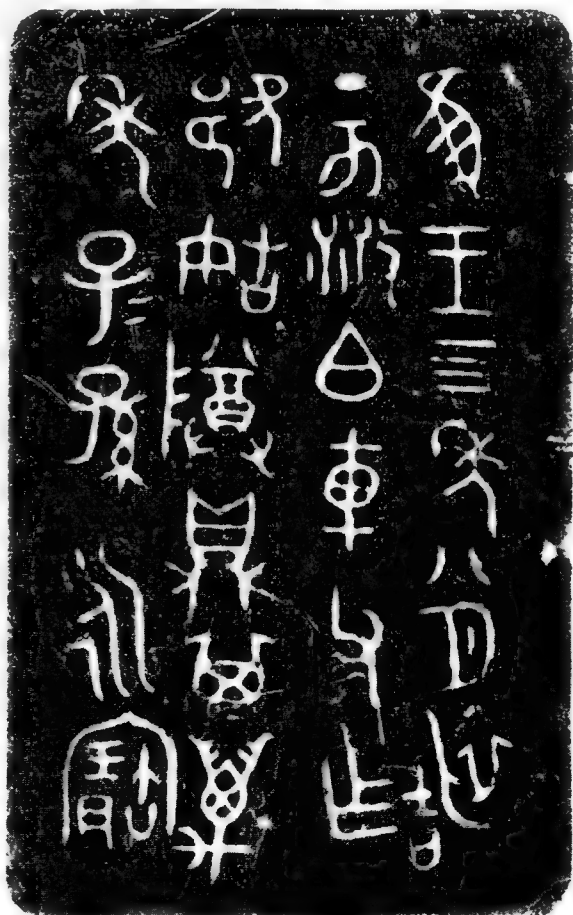 隹王四年八月初吉
丁亥散白車父乍
姞尊鼎其萬
年子=孫永寶